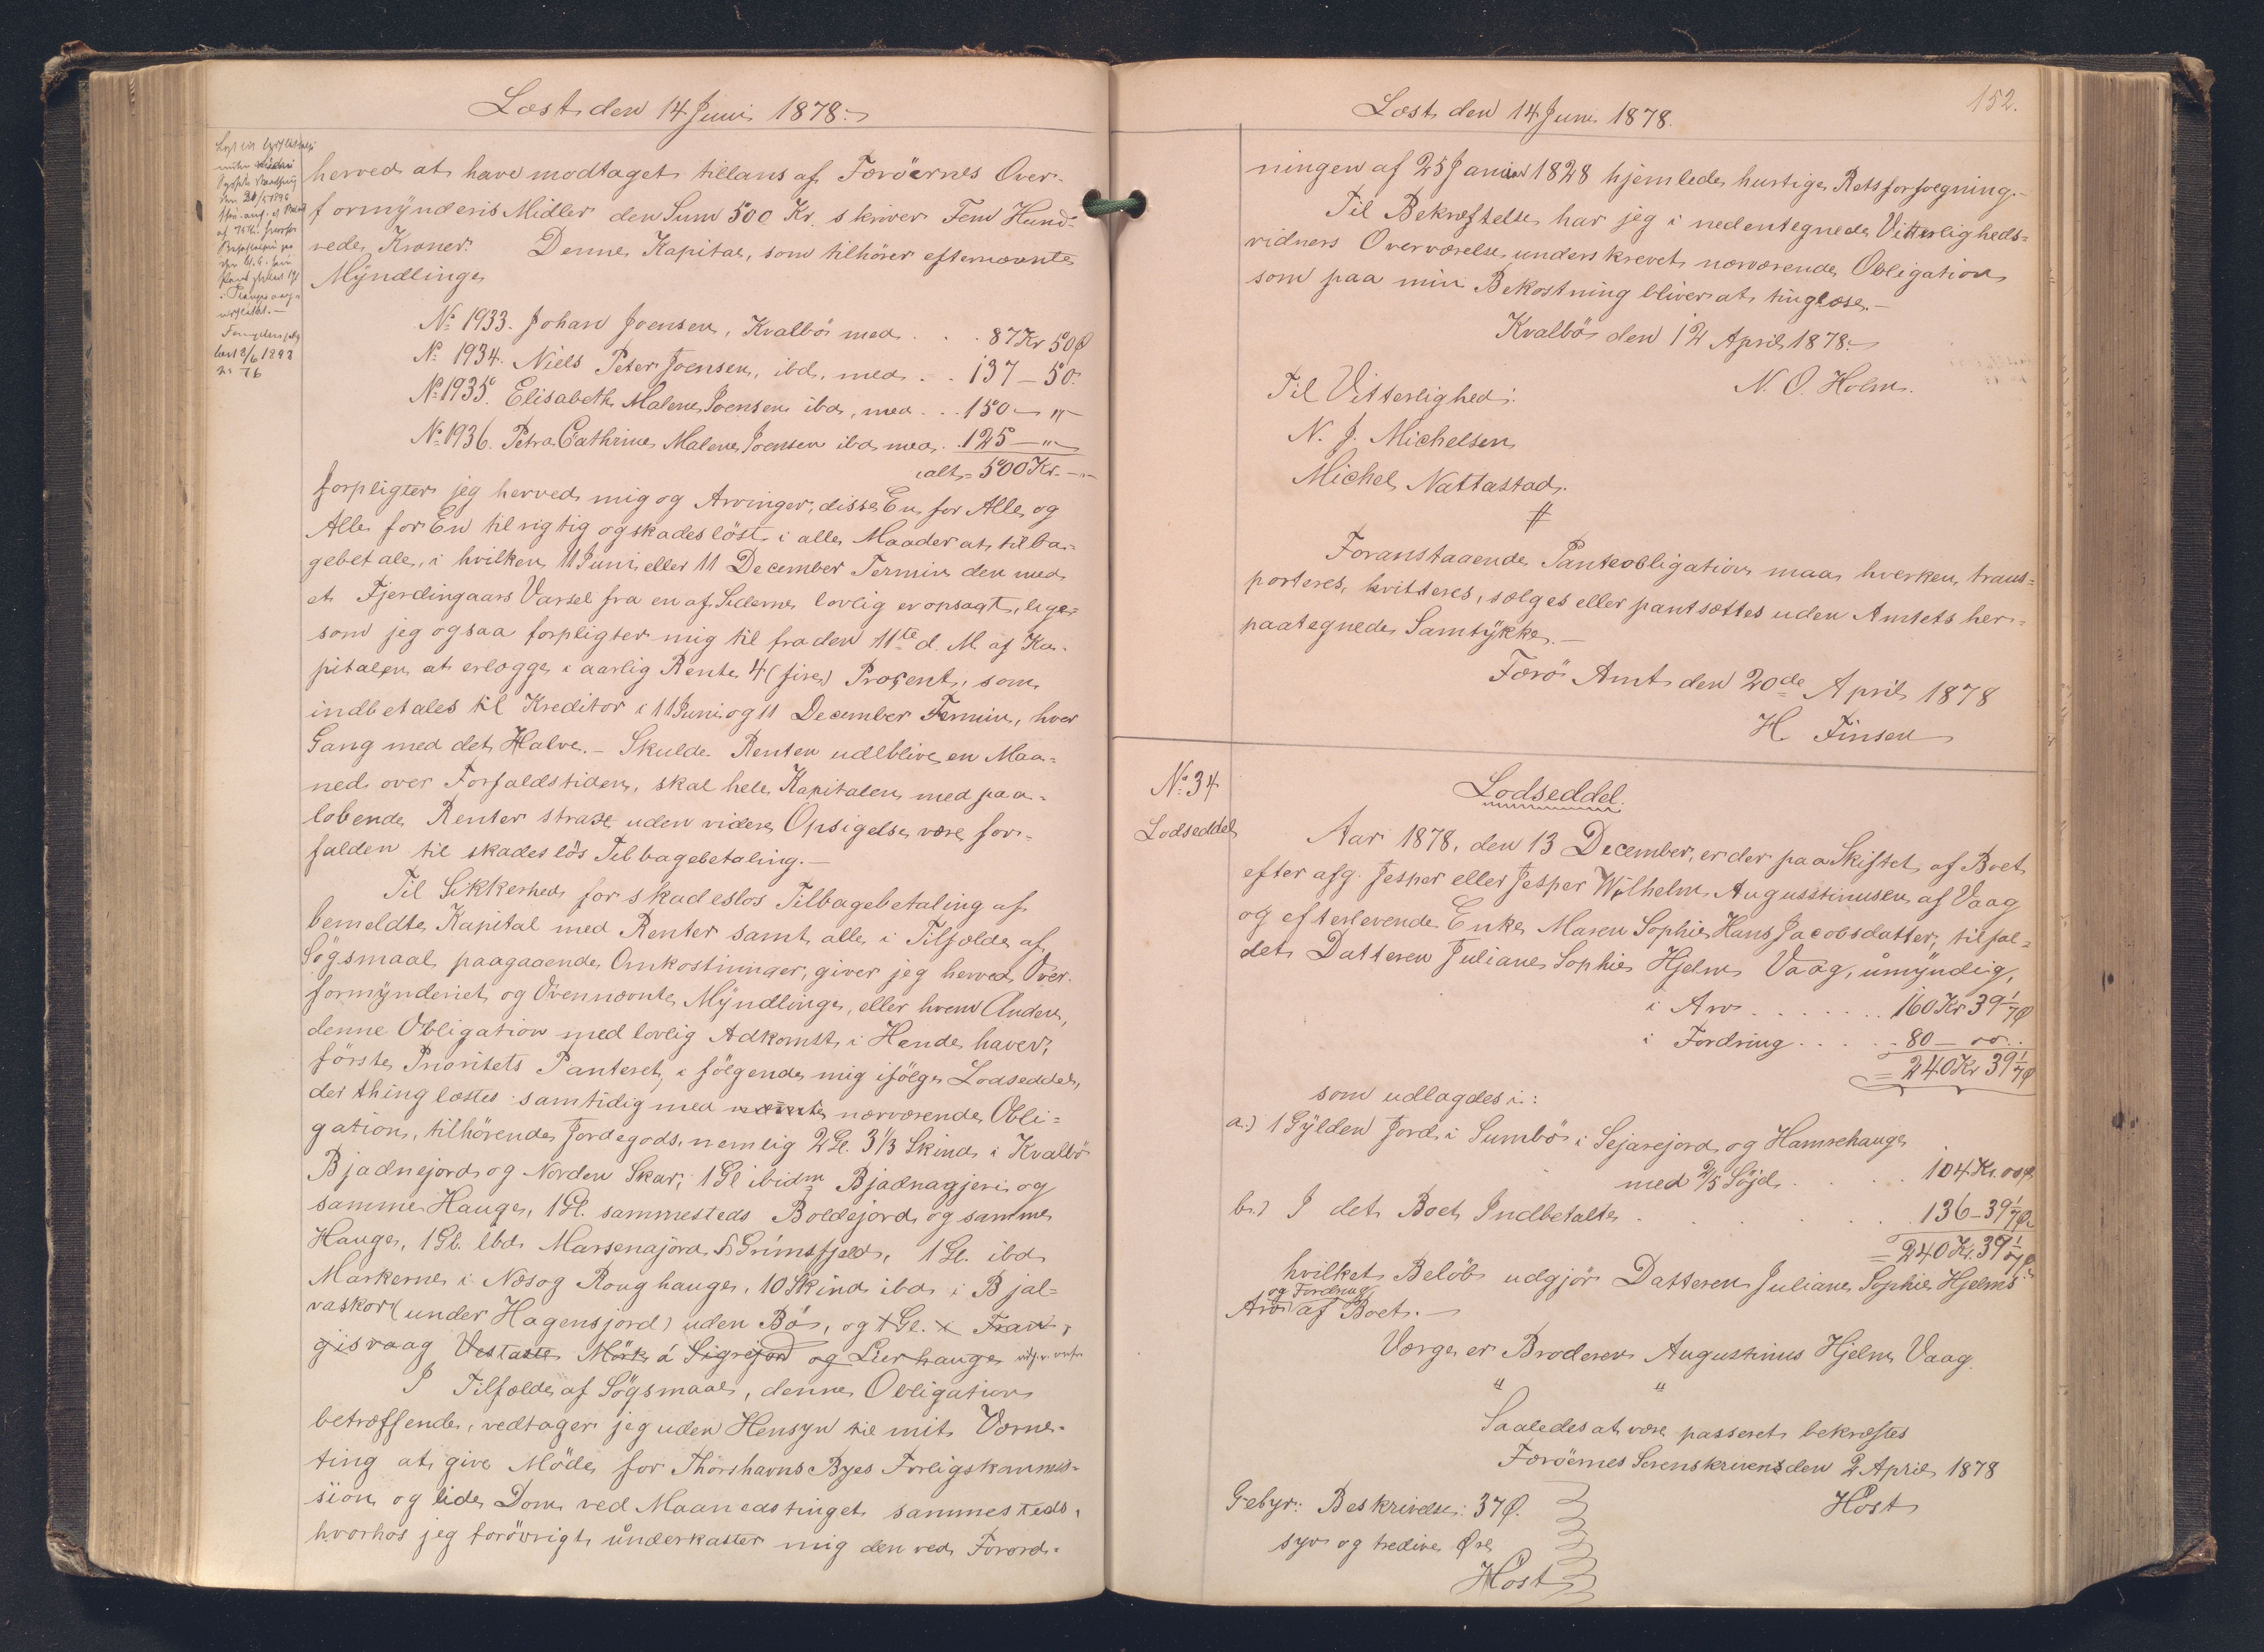 Læst den 14 Juni 1878.
herved at have modtaget tillaans af Færöernes Over-
formynderis Midler den Sum 500 Kr. skriver Fem Hund-
rede Kroner. Denne Kapital, som tilhörer efternævnte
Myndlinge
No 1933. Johan Joensen, Kvalbö med . . . 87 Kr 50 Ø
No 1934. Niels Peter Joensen, ibd, med . . 137 — 50.
No 1935. Elisabeth Malene Joensen ibd, med . . . 150 — "
No 1936. Petra Cathrine Malene Joensen ibd med . 125 — "
ialt = 500 Kr. — "
forpligter jeg herved mig og Arvinger, disse En for Alle og
Alle for En til rigtig og skadeslöst i alle Maader at tilba-
gebetale, i hvilken 11 Juni eller 11 December Termin den med
et Fjerdingaars Varsel fra en af Siderne lovlig er opsagt, lige-
som jeg ogsaa forpligter mig til fra den 11te d. M. af Ka-
pitalen at erlægge i aarlig Rente 4 (fire) Procent, som
indbetales til Kreditor i 11 Juni og 11 December Termin, hver
Gang med det Halve. – Skulde Renten udeblive en Maa-
ned over Forfaldstiden, skal hele Kapitalen med paa-
löbende Renter strax uden videre Opsigelse være for-
falden til skadeslös Tilbagebetaling. —
Til Sikkerhed for skadeslös Tilbagebetaling af
bemeldte Kapital med Renter samt alle i Tilfælde af
Sögsmaal paagaaende Omkostninger, giver jeg herved Over-
formynderiet og Ovennævnte Myndlinge, eller hvem Anden,
denne Obligation med lovlig Adkomst i Hænde haver,
förste Prioritets Panteret, i fölgende mig ifölge Lodseddel,
der thinglæstes samtidig med nævnte nærværende Obli-
gation, tilhörende Jordegods, nemlig 2 Gl. 3 1/3 Skind i Kvalbö
Bjadnejord og Norden Skar, 1 Gl ibidm Bjadnagjeri og
samme Hauge, 1 Gl. sammesteds Boldejord og samme
Hauge, 1 Gl. ibd Marsenajörd & Grimsfjeld, 1 Gl. ibd
Markerne i Næs og Roughauge, 10 Skind ibd i Bjal-
vaskor (under Hagensjord) uden Bö, og 1 Gl. i Fran-
gisvaag Vestaste Mörk á Sigrejord og Lierhauge
I Tilfælde af Sögsmaal, denne Obligation
betræffende, vedtager jeg uden Hensyn til mit Værne-
ting at give Möde for Thorshavns Byes Forligskommis-
sion og lide Dom ved Maanedstinget sammesteds,
hvorhos jeg forövrigt underkaster mig den ved Forord-
læst 2/6 1898
No 76
Læst den 14 Juni 1878.
152.
ningen af 25 Januar 1828 hjemlede hurtige Retsforfølgning.
Til Bekræftelse har jeg i nedentegnede Vitterligheds-
vidners Overværelse underskrevet nærværende Obligation
som paa min Bekostning bliver at tinglæse. —
Kvalbö den 12 April 1878.
N. O. Holm.
Til Vitterlighed:
N. J. Michelsen
Michel Nattastad.
#
Foranstaaende Panteobligation maa hverken trans-
porteres, kvitteres, sælges eller pantsættes uden Amtets her-
paategnede Samtykke. —
Færö Amt den 20de April 1878
H. Finsen
No 34
Lodseddel
Lodseddel.
Aar 1878, den 13 December, er der paa Skiftet af Boet
efter afg. Jesper eller Jesper Wilhelm Augusstinusen af Vaag
og efterlevende Enke Maren Sophie Hans Jacobsdatter, tilfal-
det Datteren Juliane Sophie Hjelm Vaag, umyndig,
i Arv . . . . . . . 160 Kr 39 1/7 Ø
i Fordring . . . . - 80 — oo . .
= 240 Kr 39 1/7 Ø
som udlagdes i:
a.) 1 Gylden Jord i Sumbö i Sejarejord og Hamrehauge
med 2/5 Söjd . . . . . 104 Kr. oo Ø
b.) I det Boet Indbetalte . . . . . . . 136 – 39 1/7 Ø
= 240 Kr. 39 1/7 Ø
hvilket Belöb udgjör Datteren Juliane Sophie Hjelms
og Fordring
Arv af Boet. —
Værge er Broderen Augustinus Hjelm Vaag.
" "
Saaledes at være passeret bekræftes
Færöernes Sorenskriveri den 2 April 1878
Höst
Gebyr: Beskrivelse: 37 Ø.
syv og tredive Øre
Höst